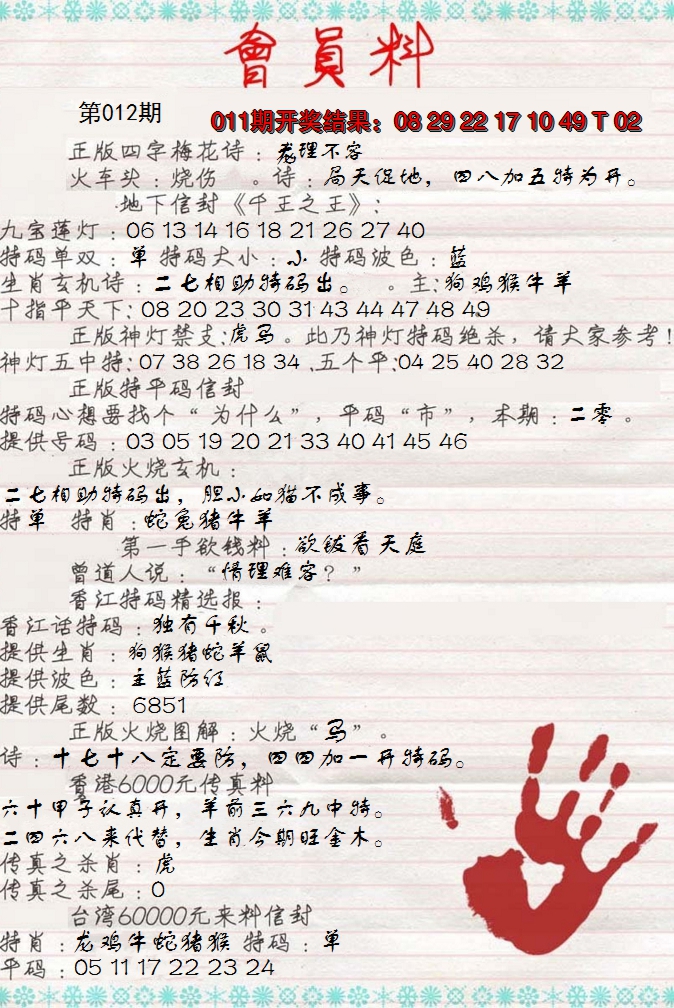 會員料
第012期
011期开奖结果：08 29 22 17 10 49 T 02
正版四字梅花诗：龙理不容
火车头：烧伤 。诗：局天促地，四八加五特为开。
地下信封《千王之王》：
九宝莲灯：06 13 14 16 18 21 26 27 40
特码单双：单 特码大小：小 特码波色：蓝
生肖玄机诗：二七相助特码出。 。主：狗鸡猴牛羊
十指平天下：08 20 23 30 31 43 44 47 48 49
正版神灯禁支：虎马。此乃神灯特码绝杀，请大家参考！
神灯五中特：07 38 26 18 34 .五个平：04 25 40 28 32
正版特平码信封
特码心想要找个“为什么”，平码“市”，本期：二零。
提供号码：03 05 19 20 21 33 40 41 45 46
正版火烧玄机：
二七相助特码出，胆小如猫不成事。
特单 特肖：蛇兔猪牛羊
第一手欲钱料：欲钱看天庭
曾道人说：“情理难容？”
香江特码精选报：
香江话特码：独有千秋。
提供生肖：狗猴猪蛇羊鼠
提供波色：主蓝防红
提供尾数：6851
正版火烧图解：火烧“马”。
诗：十七十八定要防，四四加一开特码。
香港6000元传真料
六十甲子认真开，羊前三六九中特。
二四六八来代替，生肖今期旺金木。
传真之杀肖：虎
传真之杀尾：0
台湾60000元来料信封
特肖：龙鸡牛蛇猪猴 特码：单
平码：05 11 17 22 23 24